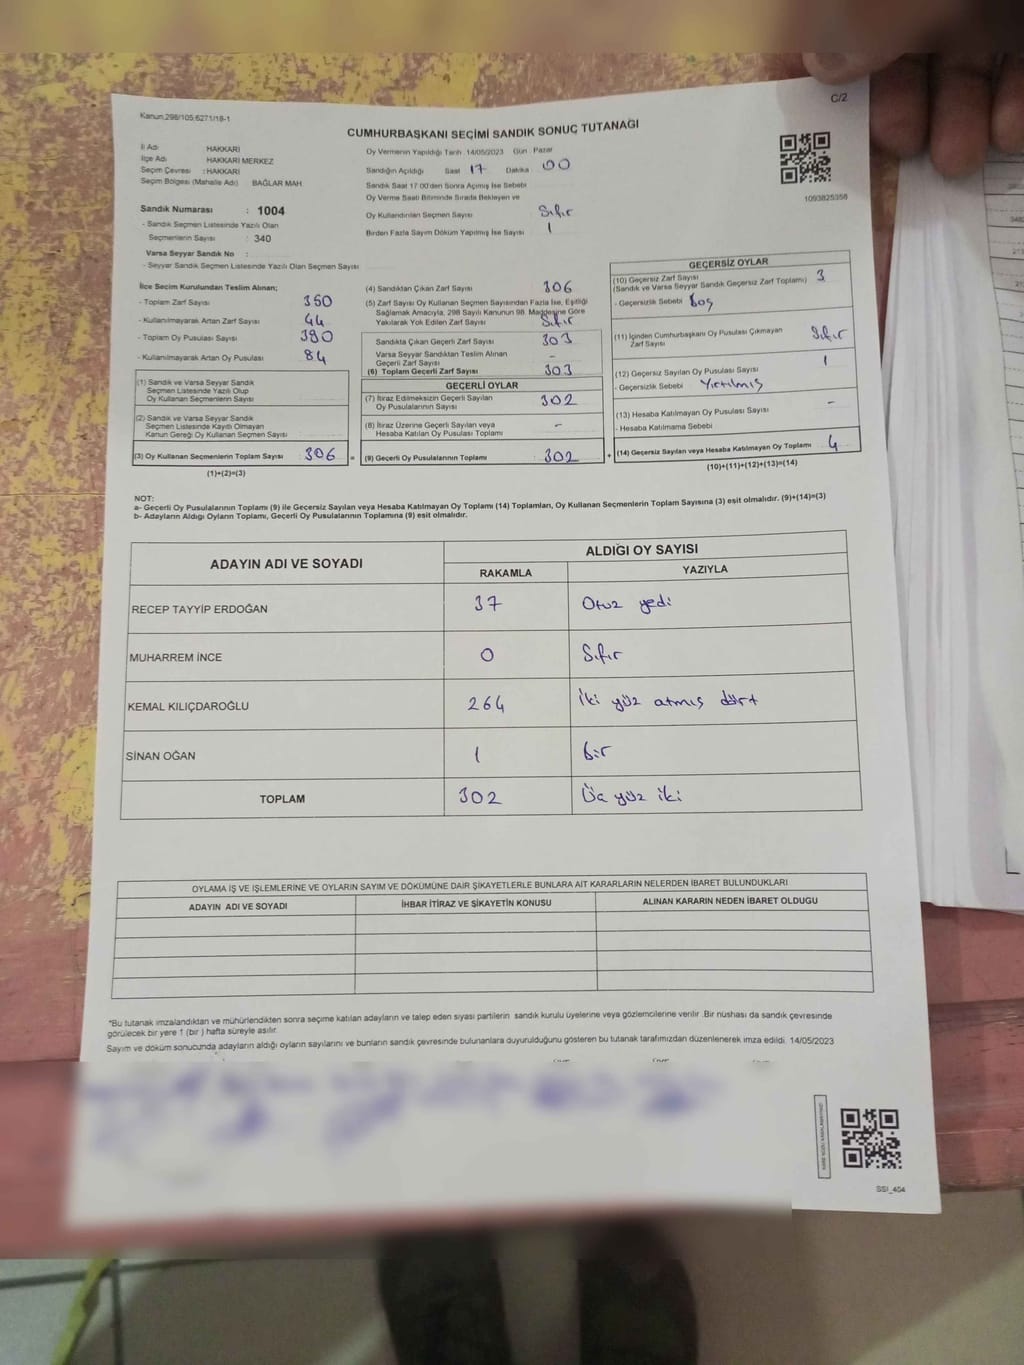 C/2
Kanun.298/105:6271/18-1
CUMHURBAŞKANI SEÇİMİ SANDIK SONUÇ TUTANAĞI
İl Adı HAKKARİ
İlçe Adı HAKKARİ MERKEZ
Seçim Çevresi :HAKKARİ
Seçim Bölgesi (Mahalle Adı) BAĞLAR MAH.
Sandık Numarası : 1004
- Sandık Seçmen Listesinde Yazılı Olan
Seçmenlerin Sayısı : 340
Varsa Seyyar Sandık No :
- Seyyar Sandık Seçmen Listesinde Yazılı Olan Seçmen Sayısı
Oy Vermenin Yapıldığı Tarih 14/05/2023 Gün : Pazar
Sandığın Açıldığı Saat 17 Dakika 00
Sandık Saat 17:00'den Sonra Açılmış İse Sebebi
Oy Verme Saati Bitiminde Sırada Bekleyen ve
Oy Kullandırılan Seçmen Sayısı Sıfır
Birden Fazla Sayım Döküm Yapılmış İse Sayısı 1
1093825358
İlçe Seçim Kurulundan Teslim Alınan;
- Toplam Zarf Sayısı : 350
- Kullanılmayarak Artan Zarf Sayısı : 44
- Toplam Oy Pusulası Sayısı : 390
- Kullanılmayarak Artan Oy Pusulası : 84
(1) Sandık ve Varsa Seyyar Sandık
Seçmen Listesinde Yazılı Olup
Oy Kullanan Seçmenlerin Sayısı :
(2) Sandık ve Varsa Seyyar Sandık
Seçmen Listesinde Kayıtlı Olmayan
Kanun Gereği Oy Kullanan Seçmen Sayısı :
(3) Oy Kullanan Seçmenlerin Toplam Sayısı : 306
(1)+(2)=(3)
(4) Sandıktan Çıkan Zarf Sayısı : 306
(5) Zarf Sayısı Oy Kullanan Seçmen Sayısından Fazla İse, Eşitliği
Sağlamak Amacıyla, 298 Sayılı Kanunun 98. Maddesine Göre
Yakılarak Yok Edilen Zarf Sayısı : Sıfır
Sandıkta Çıkan Geçerli Zarf Sayısı : 303
Varsa Seyyar Sandıktan Teslim Alınan
Geçerli Zarf Sayısı : -
(6) Toplam Geçerli Zarf Sayısı : 303
GEÇERLİ OYLAR
(7) İtiraz Edilmeksizin Geçerli Sayılan
Oy Pusulalarının Sayısı : 302
(8) İtiraz Üzerine Geçerli Sayılan veya
Hesaba Katılan Oy Pusulası Toplamı : -
= (9) Geçerli Oy Pusulalarının Toplamı : 302
GEÇERSİZ OYLAR
(10) Geçersiz Zarf Sayısı
(Sandık ve Varsa Seyyar Sandık Geçersiz Zarf Toplamı) : 3
- Geçersizlik Sebebi Boş
(11) İçinden Cumhurbaşkanı Oy Pusulası Çıkmayan
Zarf Sayısı : Sıfır
(12) Geçersiz Sayılan Oy Pusulası Sayısı : 1
- Geçersizlik Sebebi Yırtılmış
(13) Hesaba Katılmayan Oy Pusulası Sayısı : -
- Hesaba Katılmama Sebebi
+ (14) Geçersiz Sayılan veya Hesaba Katılmayan Oy Toplamı : 4
(10)+(11)+(12)+(13)=(14)
NOT:
a- Geçerli Oy Pusulalarının Toplamı (9) ile Geçersiz Sayılan veya Hesaba Katılmayan Oy Toplamı (14) Toplamları, Oy Kullanan Seçmenlerin Toplam Sayısına (3) eşit olmalıdır. (9)+(14)=(3)
b- Adayların Aldığı Oyların Toplamı, Geçerli Oy Pusulalarının Toplamına (9) eşit olmalıdır.
ADAYIN ADI VE SOYADI ALDIĞI OY SAYISI
RAKAMLA YAZIYLA
RECEP TAYYİP ERDOĞAN 37 Otuz yedi
MUHARREM İNCE 0 Sıfır
KEMAL KILIÇDAROĞLU 264 İki yüz atmış dört
SİNAN OĞAN 1 bir
TOPLAM 302 Üç yüz iki
OYLAMA İŞ VE İŞLEMLERİNE VE OYLARIN SAYIM VE DÖKÜMÜNE DAİR ŞİKAYETLERLE BUNLARA AİT KARARLARIN NELERDEN İBARET BULUNDUKLARI
ADAYIN ADI VE SOYADI İHBAR İTİRAZ VE ŞİKAYETİN KONUSU ALINAN KARARIN NEDEN İBARET OLDUĞU
*Bu tutanak imzalandıktan ve mühürlendikten sonra seçime katılan adayların ve talep eden siyasi partilerin sandık kurulu üyelerine veya gözlemcilerine verilir .Bir nüshası da sandık çevresinde
görülecek bir yere 1 (bir ) hafta süreyle asılır.
Sayım ve döküm sonucunda adayların aldığı oyların sayılarını ve bunların sandık çevresinde bulunanlara duyurulduğunu gösteren bu tutanak tarafımızdan düzenlenerek imza edildi. 14/05/2023
SSI_404